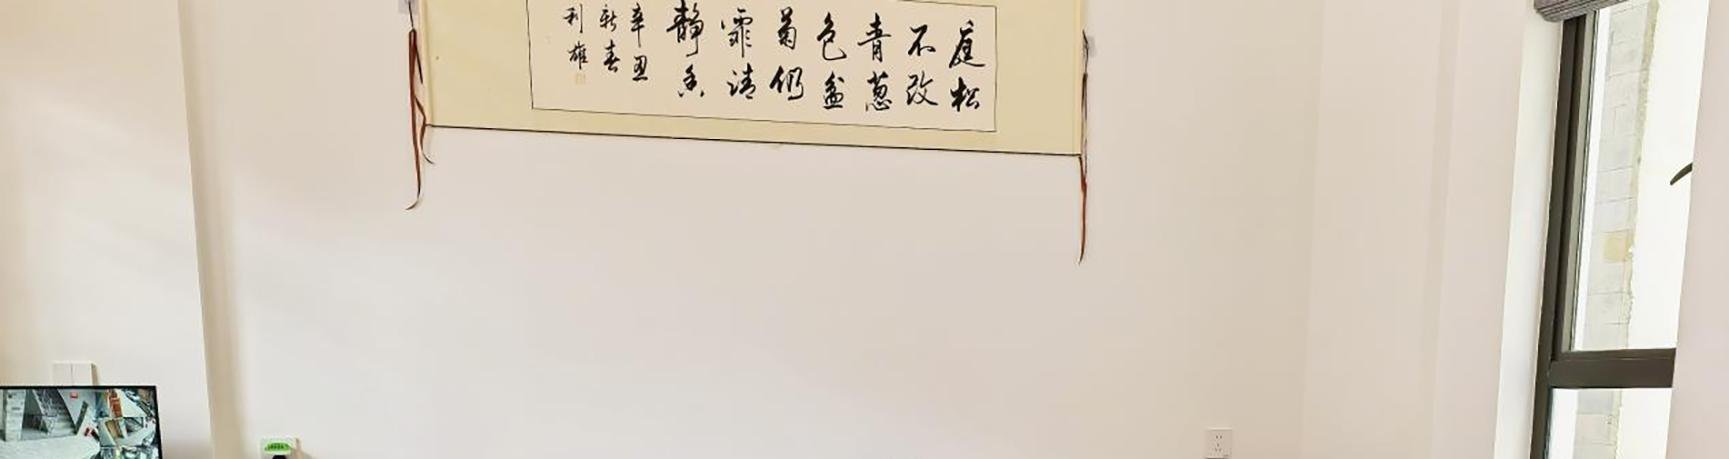 庭松
不改
青葱
色盆
菊仍
霏清
静香
辛丑
新春
利雄